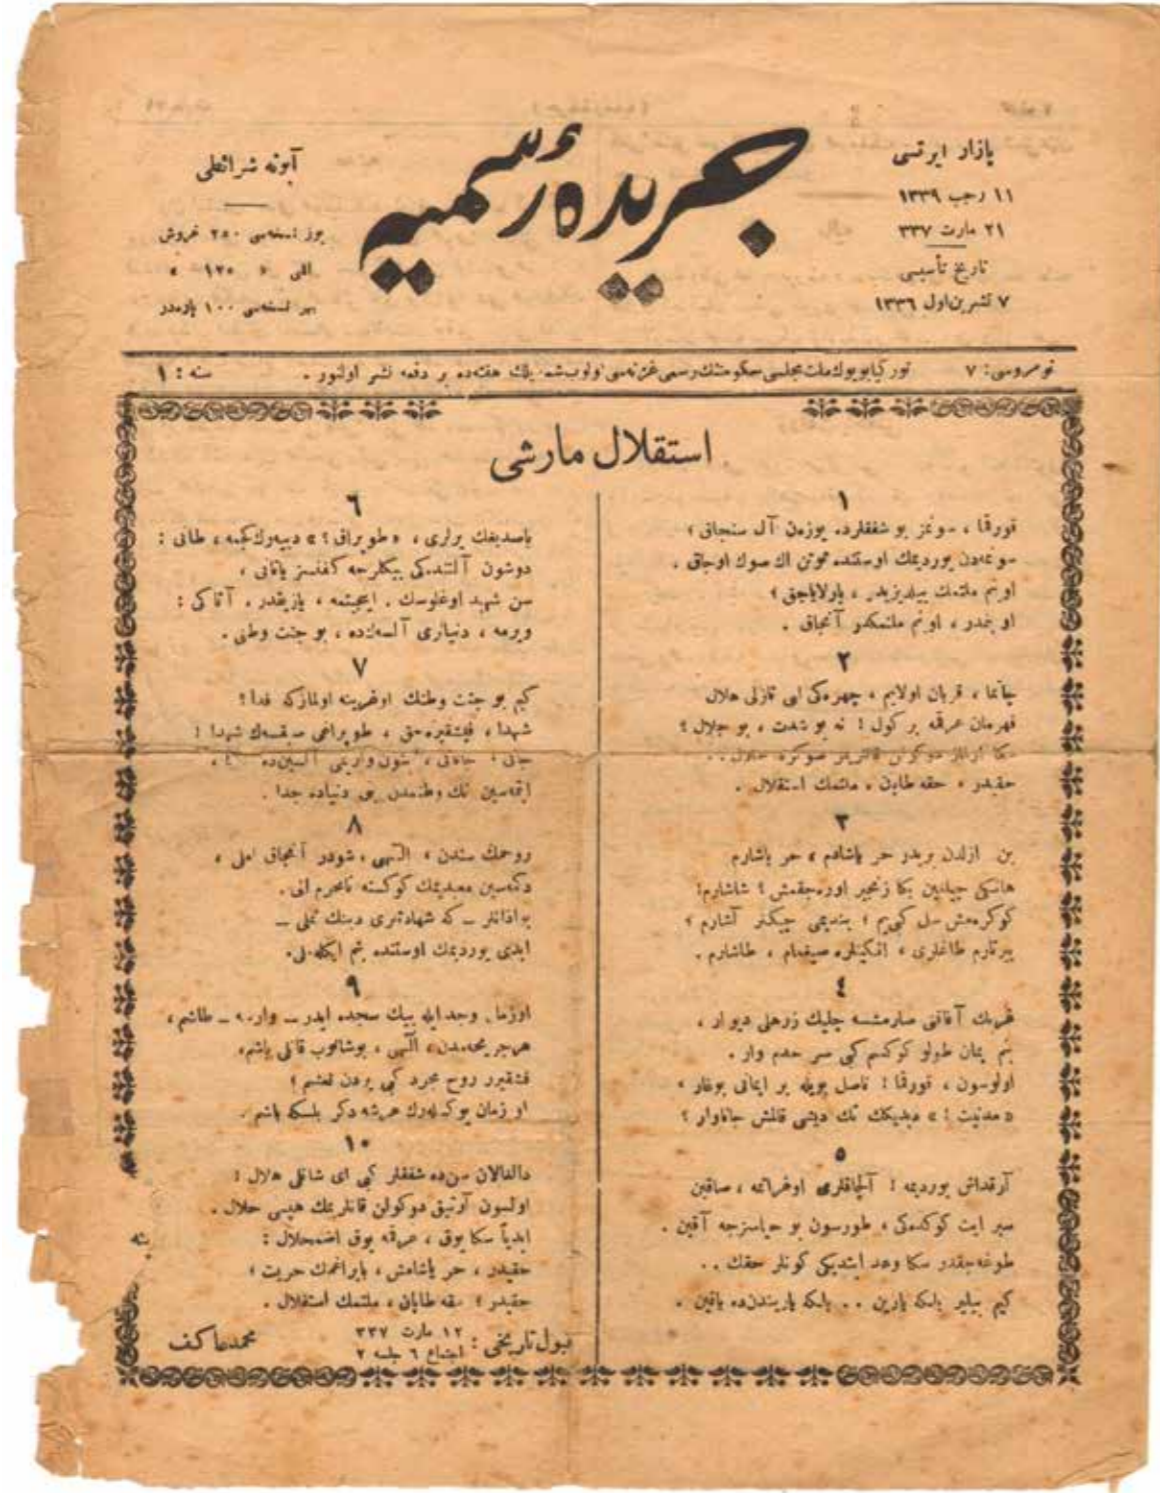 جريدهٔ رسميه
پازار ايرتسى
١١ رجب ١٣٣٩
٢١ مارت ٣٣٧
تاريخ تأسيسى
٧ تشرين اول ١٣٣٦
آبونه شرائطى
يوز نسخه‌سى ٢٥٠ غروش
اللى » ١٢٥ »
بهر نسخه‌سى ١٠٠ پاره‌در
نومروسى: ٧
توركيا بويوك ملت مجلسى حكومتنك رسمى غزته‌سى اولوب شمديلك هفته‌ده بر دفعه نشر اولنور .
سنه : ١
استقلال مارشى
١
قورقما ، سونمز بو شفقلرده يوزه‌ن آل سنجاق ؛
سونمه‌دن يورديمك اوستنده توتن اك صوك اوجاق .
او بنم ملتمك ييلديزيدر ، پارلاياجق ؛
او بنمدر ، او بنم ملتمكدر آنجاق .
٢
چاتما ، قربان اولايم ، چهره‌كى اى نازلى هلال
قهرمان عرقمه بر كول ! نه بو شدت ، بو جلال ؟
سكا اولماز دوكولن قانلريمز صوكره حلال . .
حقيدر ، حقه طاپان ، ملتمك استقلال .
٣
بن ازلدن بريدر حر ياشادم ، حر ياشارم
هانكى چيلغين بكا زنجير اوره‌جقمش ؟ شاشارم!
كوكره‌مش سل كبى‌يم ؛ بنديمى چيكنر آشارم ؛
ييرتارم طاغلرى ، انكينلره صيغمام ، طاشارم .
٤
غربك آفاقنى صارمشسه چليك زرهلى ديوار ،
بنم ايمان طولو كوكسم كبى سر حدم وار .
اولوسون ، قورقما ! ناصل بويله بر ايمانى بوغار ،
« مدنيت ! » ديديكك تك ديشى قالمش جاناوار ؟
٥
آرقداش يورديمه ! آلچاقلرى اوغراتمه ، صاقين
سپر ايت كوكده‌كى ، طورسون بو حياسزجه آقين .
طوغه‌جقدر سكا وعد ايتديكى كونلر حقك . .
كيم بيلير بلكه يارين . . بلكه ياريندن‌ده ياقين .
٦
باصديغك يرلرى ، « طوپراق ؟ » دييه‌رك كچمه ، طانى :
دوشون آلتنده‌كى بيكلرجه كفنسز ياتانى ،
سن شهيد اوغلوسك . اينجيتمه ، يازيقدر . آتاكى :
ويرمه ، دنيالرى آلسه‌ك‌ده ، بو جنت وطنى .
٧
كيم بو جنت وطنك اوغرينه اولمازكه فدا ؟
شهدا ، فيشقيره‌جق ، طوپراغى صيقسه‌ك شهدا !
جانى ، جانانى ، بتون واريمى آلسين‌ده ،
ايتمه‌سين تك وطنمدن بنى دنياده جدا .
٨
روحمك سندن ، الٓهى ، شودر آنجاق املى ،
دكمه‌سين معبديمك كوكسنه نامحرم الى .
بو اذانلر ــ كه شهادتلرى دينك تملى ــ
ابدى يورديمك اوستنده بنم ايكله‌ملى.
٩
او زمان وجد ايله بيك سجده ايدر ــ وارسه ــ طاشم ،
هر جريحه‌مدن، الٓهى ، بوشانوب قانلى ياشم،
فيشقيرر روح مجرد كبى يردن نعشم ؛
او زمان يوكسله‌رك عرشه دكر بلكه باشم .
١٠
دالغالان سن‌ده شفقلر كبى اى شانلى هلال !
اولسون آرتيق دوكولن قانلريمك هپسى حلال .
ابدياً سكا يوق ، عرقمه يوق اضمحلال :
حقيدر ، حر ياشامش ، بايراغمك حريت ؛
حقيدر ؛ حقه طاپان ، ملتمك استقلال .
قبول تاريخى : ١٢ مارت ٣٣٧
اجتماع ٦ جلسه ٢
محمد عاكف